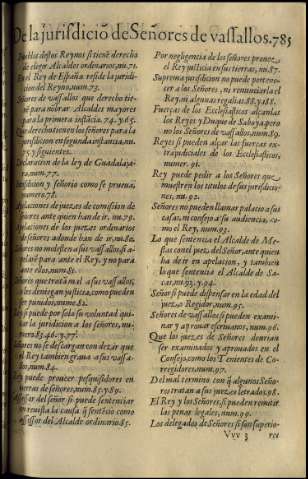 De la jurisdicio de Señores de vassallos. 785
Pueblos destos Reynos si tiene derecho
de elegir Alcaldes ordenaros, nu. 71.
En el Rey de España reside la jurisdi-
cion del Reyno, num. 73.
Señores de vassallos que derecho tie-
nē para nōbrar Alcaldes mayores
para la primera instācia. 74. y 65.
Que derecho tienen los señores para la
jurisdicion en segunda instancia, nu.
75. y siguientes.
Declaracion de la ley de Guadalaja-
ra, num. 77.
Iurisdicion y señorio como se prueua,
numero. 78.
Apelaciones de juezes de comission de
señores ante quien han de ir. nu. 79.
Apelaciones de los juezes ordinarios
de señores adonde han de ir. nu. 80.
Señores no impidiesen a sus vassallos a-
pelar para ante el Rey, y no para
ante ellos, num. 81.
Señores que tratā mal a sus vassallos,
o les deniegan justicia, como pueden
ser punidos, numero. 82.
Rey si puede por sola su voluntad qui-
tar la jurisdicion a los señores, nu-
mero. 83. 46. y. 77.
Señores no se descargan con dezir que
el Rey tambien graua a sus vassa-
llos, num. 84.
Rey puede proueer pesquisidores en
tierras de señores, num. 85. y 89.
Assessor del señor si puede sentenciar
en reuista la causa q̄ sentēciò como
assessor del Alcalde ordinario. 85.
Por negligencia de los señores prouee,
el Rey justicia en sus tierras, nu. 87.
Suprema jurisdicion no puede perte ne-
cer a los Señores, ni renunciarla el
Rey, ni algunas regalias. 88. y 18.
Fuerças de los Ecclesiasticos alcanlas
los Reyes y Duque de Saboya pero
no los Señores de vassallos, num. 89.
Reyes si pueden alçar las fuerças ex-
trajudiciales de los Ecclesiasticos,
numer. 91.
Rey puede pedir a los Señores que
muestren los titulos de sus jurisdicio-
nes, nu. 92.
Señores no pueden llamar palacio a sus
casas, ni consejo a su audiencia, co-
mo el Rey, num. 93.
Lo que sentencia el Alcalde de Me-
stas como juez del Señor, ante quien
ha de ir en apelacion, y tambien
lo que sentencia el Alcalde de Sa-
cas, nu. 93. y. 94.
Señor si puede dispensar en la edad del
juez, o Regidor, num. 95.
Señores de vassallos si pueden exami-
nar y aprouar escriuanos, num. 96.
Que los juezes de Señores deurian
ser examinados y aprouados en el
Consejo, como los Tenientes de Co-
rregidores, num. 97.
Del mal termino con q̄ algunos Seño-
res tratan a sus juezes letrados. 98.
El Rey y los Señores, si pueden remitir
las penas legales, num. 99.
Los delegados de Señores si son superio-
Vvv 3 res